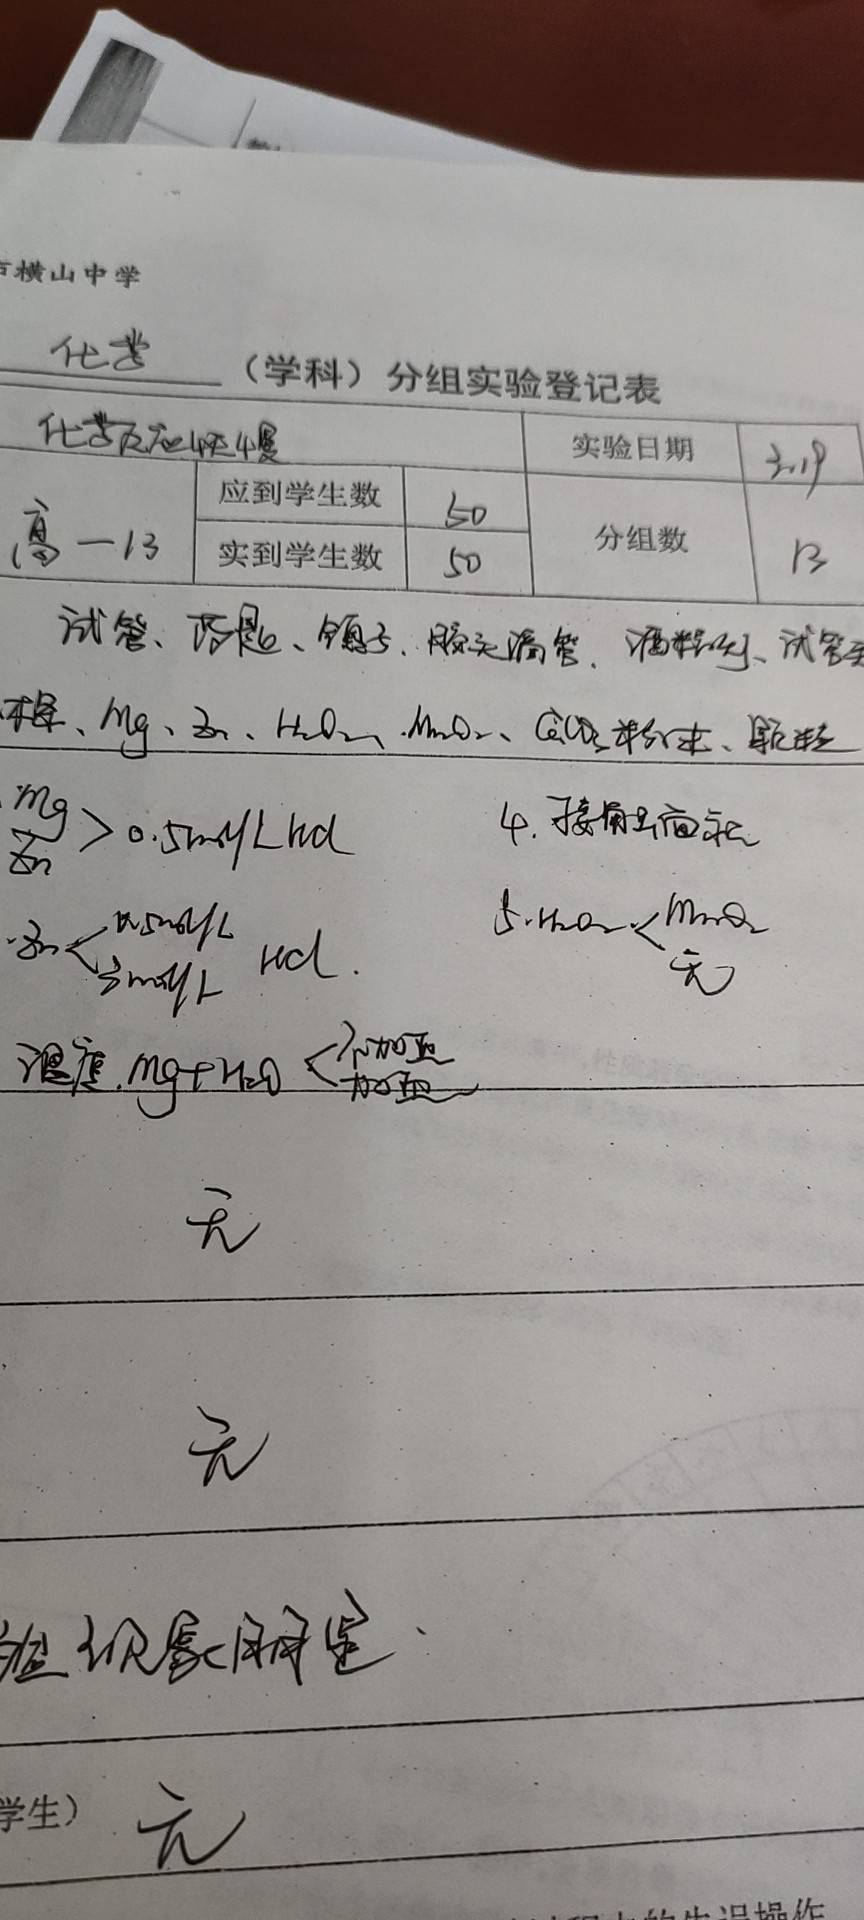 市横山中学
化学（学科）分组实验登记表
化学反应快慢 实验日期 3.19
高一13 应到学生数 50 分组数 13
实到学生数 50
试管、药匙、镊子、胶头滴管、酒精灯、试管夹
Mg、Zn、H2O2、MnO2、CaCO3粉末、颗粒
Mg Zn > 0.5mol/L HCl 4. 接触面积
Zn < 0.5mol/L 3mol/L HCl. 5. H2O2 < MnO2 无
温度. Mg+H2O < 不加热 加热
无
无
验现象明显.
学生） 无
的失误操作